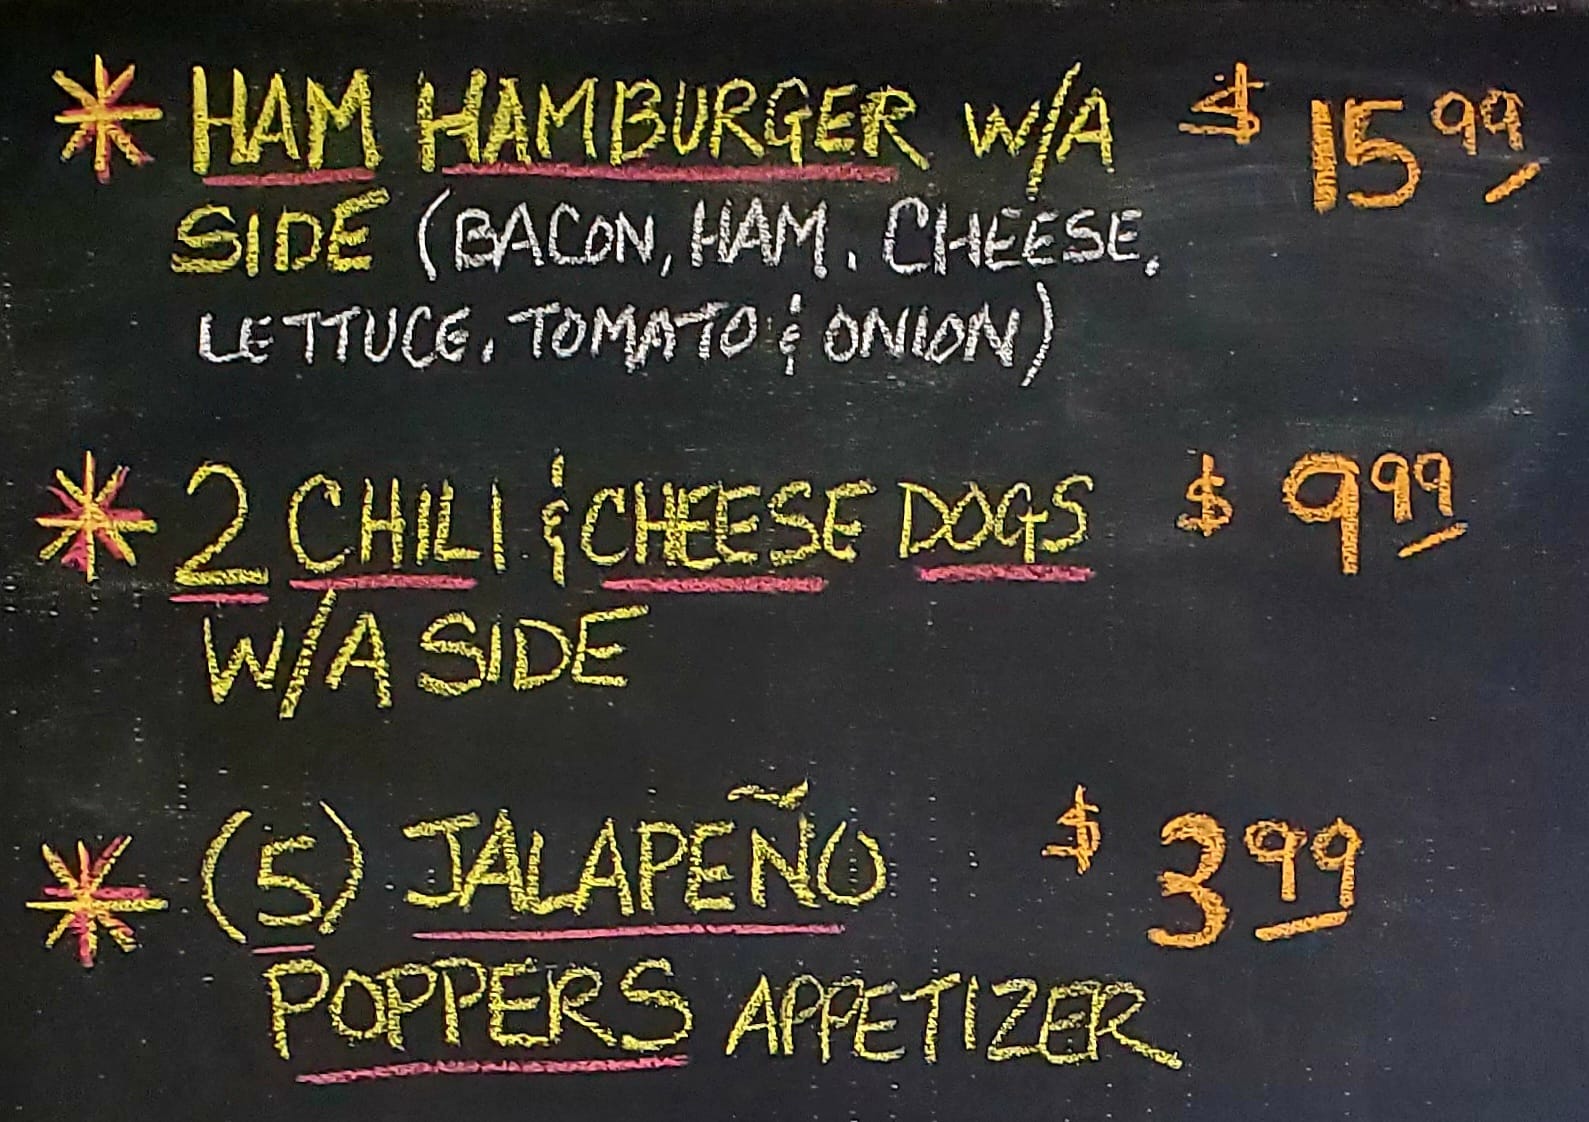 * HAM HAMBURGER W/A $ 15 99
SIDE (BACON, HAM, CHEESE,
LETTUCE, TOMATO & ONION)
* 2 CHILI & CHEESE DOGS $ 9 99
W/A SIDE
* (5) JALAPEÑO $ 3 99
POPPERS APPETIZER